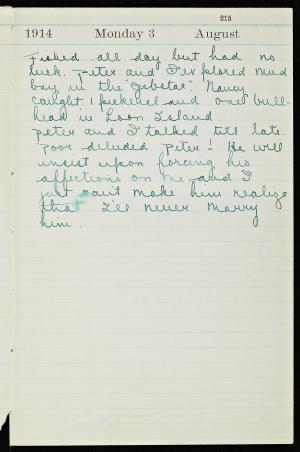 215
1914 Monday 3 August
Fished all day but had no
luck. Peter and I explored mud
bay in the "Jebstar". Nancy
caught 1 pickerel and one bull-
head in Loon Island
Peter and I talked till late.
Poor deluded Peter! He will
insist upon forcing his
affections on me and I
just can't make him realize
that I'll never marry
him.